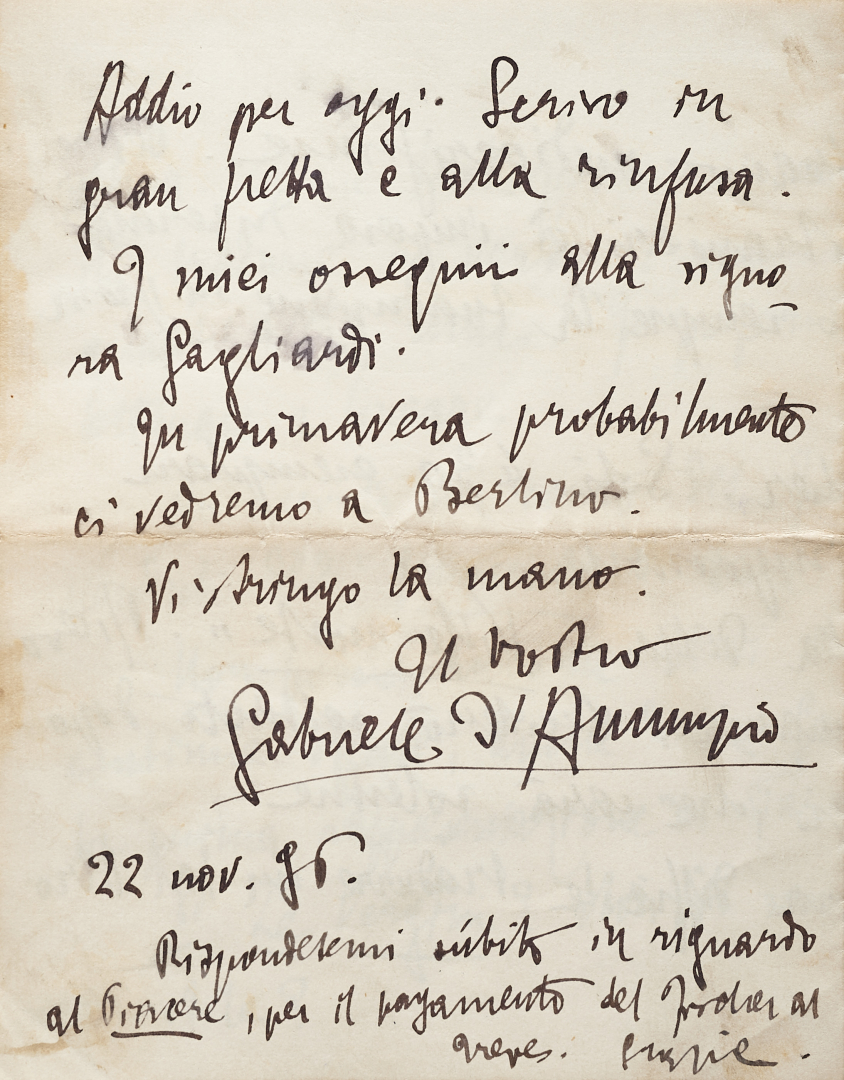 Addio per oggi. Scrivo in
gran fretta e alla rinfusa.
I miei ossequii alla signo
ra Gagliardi.
In primavera probabilmente
ci vedremo a Berlino.
Vi stringo la mano.
Il vostro
Gabriele D'Annunzio
22 nov. 96.
Rispondetemi sùbito in riguardo
al Piacere, per il pagamento del Fischer al
Treves. Grazie.